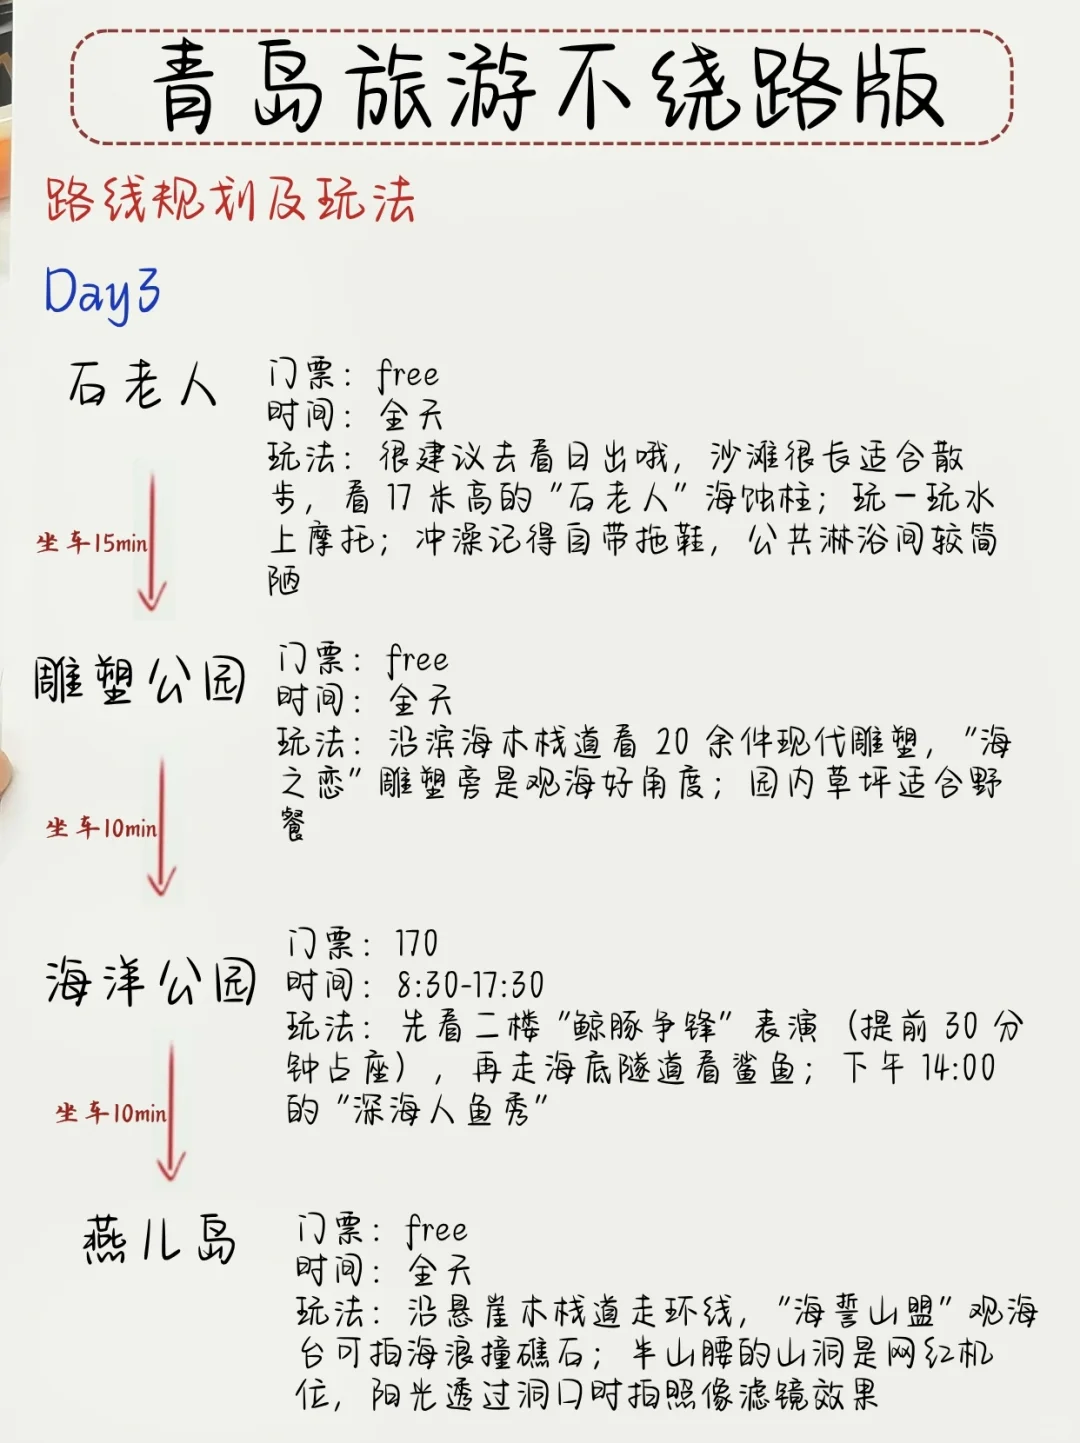 青岛旅游不绕路版
路线规划及玩法
Day3
石老人
门票：free
时间：全天
玩法：很建议去看日出哦，沙滩很长适合散
步，看17米高的“石老人”海蚀柱；玩一玩水
上摩托；冲澡记得自带拖鞋，公共淋浴间较简
陋
坐车15min
雕塑公园
门票：free
时间：全天
玩法：沿滨海木栈道看 20 余件现代雕塑，“海
之恋”雕塑旁是观海好角度；园内草坪适合野
餐
坐车10min
海洋公园
门票：170
时间：8:30-17:30
玩法：先看二楼“鲸豚争锋”表演（提前 30 分
钟占座），再走海底隧道看鲨鱼；下午 14:00
的“深海人鱼秀”
坐车10min
燕儿岛
门票：free
时间：全天
玩法：沿悬崖木栈道走环线，“海誓山盟”观海
台可拍海浪撞礁石；半山腰的山洞是网红机
位，阳光透过洞口时拍照像滤镜效果